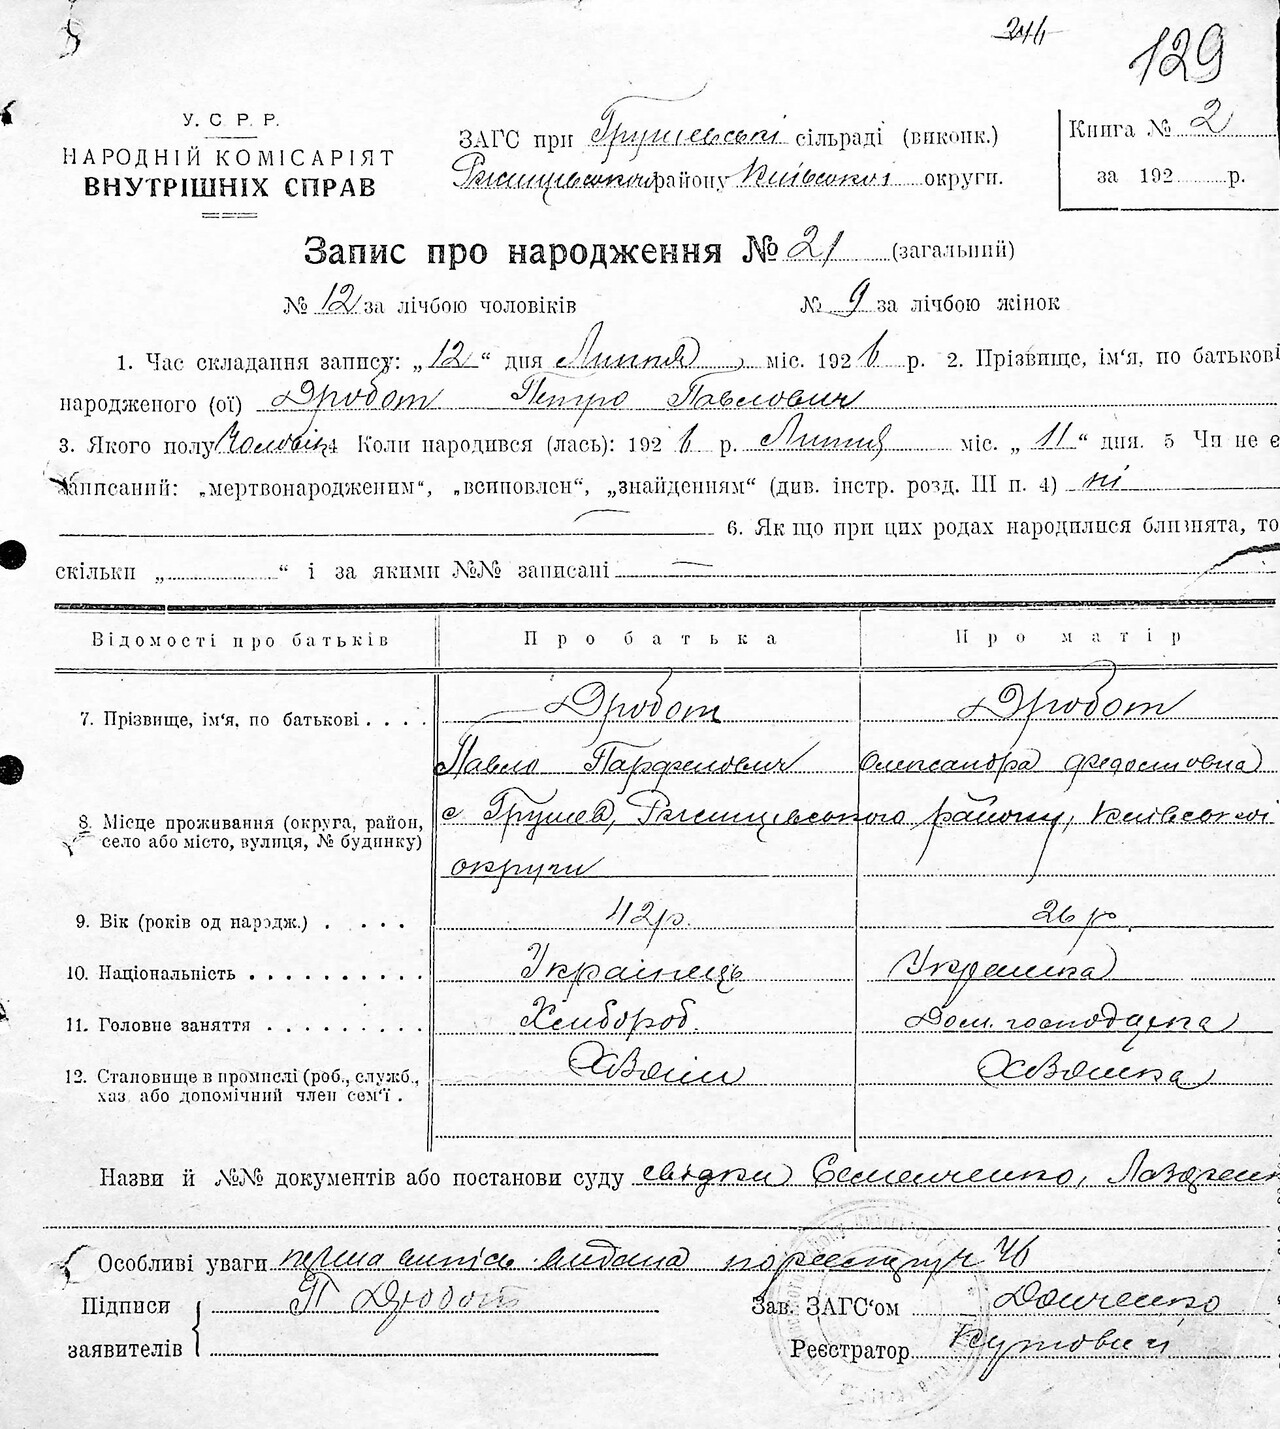 129
У. С. Р. Р.
НАРОДНІЙ КОМІСАРІЯТ
ВНУТРІШНІХ СПРАВ
ЗАГС при Грушевські сільраді (виконк.)
Ржищевського району Київської округи.
Книга № 2
за 192 р.
Запис про народження № 21 (загальний)
№ 12 за лічбою чоловіків № 9 за лічбою жінок
1. Час складання запису: „12“ дня Липня міс. 1926 р. 2. Прізвище, ім'я, по батькові
народженого (ої) Дробот Петро Павлович
3. Якого полу Чоловіч 4 Коли народився (лась): 1926 р. Липня міс. „11“ дня. 5 Чи не є
записаний: „мертвонародженим“, „всиновлен“, „знайденням“ (див. інстр. розд. III п. 4) ні
6. Як що при цих родах народилися близнята, то
скільки „ “ і за якими №№ записані
Відомості про батьків Про батька Про матір
7. Прізвище, ім'я, по батькові . . . . Дробот Дробот
Павло Парфенович Олександра Федосіовна
8. Місце проживання (округа, район, с Грушев, Ржищевського району, Київської
село або місто, вулиця, № будинку) округи
9. Вік (років од народж.) . . . . 42р. 26 р
10. Національність . . . . . . . . . Українець Украинка
11. Головне заняття . . . . . . . . Хлибороб. Дом. господарка
12. Становище в промислі (роб., служб., Хазяин Хазяйка
хаз або допомічний член сем'ї .
Назви й №№ документів або постанови суду свідки Семенченко, Лазарен
Особливі уваги перша випісь видана по реєстру №
Підписи П Дробот Зав. ЗАГС'ом Донченко
заявителів Реєстратор Кутовий